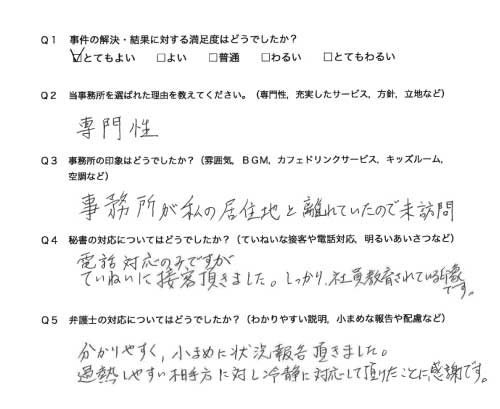 Q1 事件の解決・結果に対する満足度はどうでしたか？
☑とてもよい □よい □普通 □わるい □とてもわるい
Q2 当事務所を選ばれた理由を教えてください。（専門性，充実したサービス，方針，立地など）
専門性
Q3 事務所の印象はどうでしたか？（雰囲気，BGM，カフェドリンクサービス，キッズルーム，
空調など）
事務所が私の居住地と離れていたので未訪問
Q4 秘書の対応についてはどうでしたか？（ていねいな接客や電話対応，明るいあいさつなど）
電話対応のみですが
ていねいに接客頂きました。しっかり、社員教育されている印象
です。
Q5 弁護士の対応についてはどうでしたか？（わかりやすい説明，小まめな報告や配慮など）
分かりやすく，小まめに状況報告頂きました。
過熱しやすい相手方に対し冷静に対応して頂けたことに感謝です。